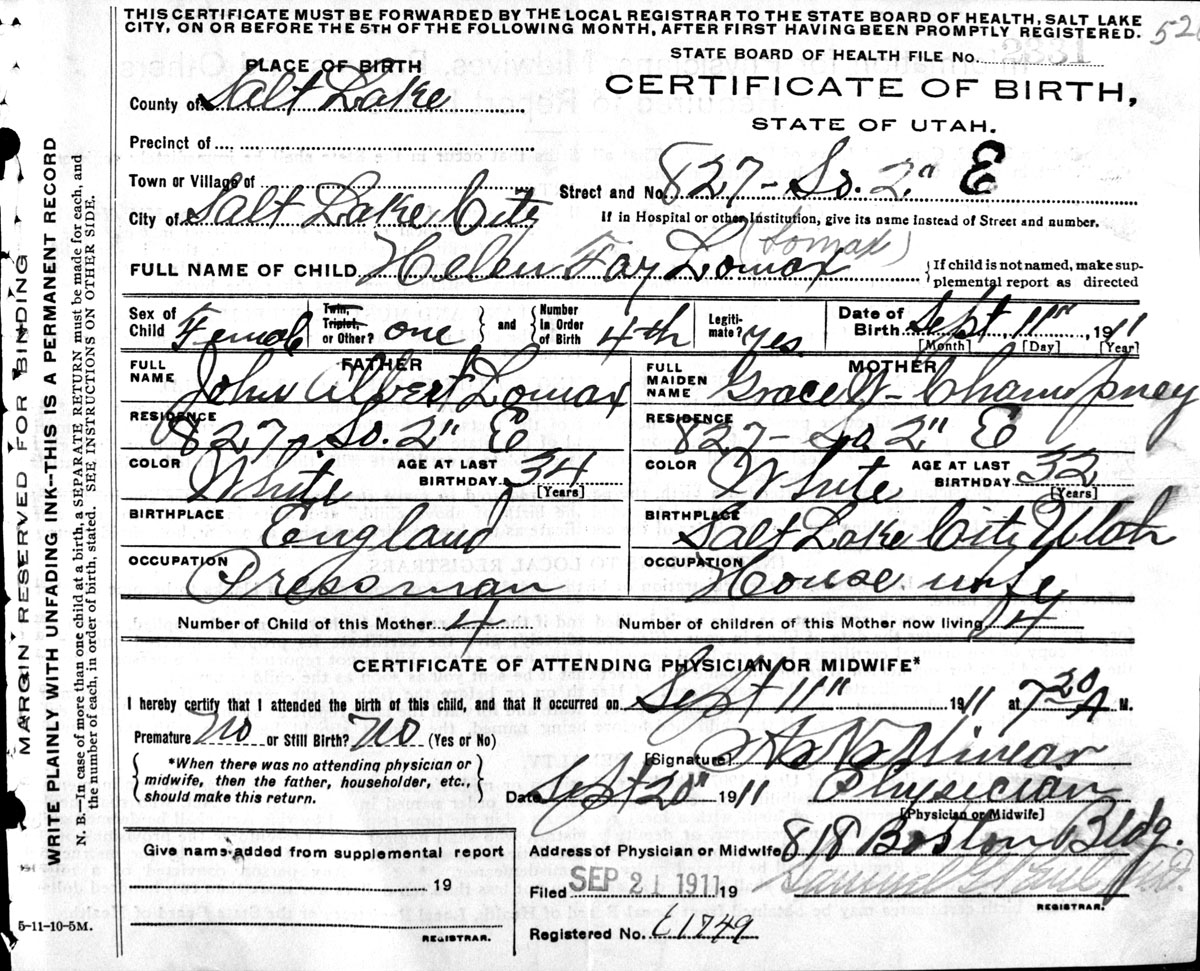 THIS CERTIFICATE MUST BE FORWARDED BY THE LOCAL REGISTRAR TO THE STATE BOARD OF HEALTH, SALT LAKE
CITY, ON OR BEFORE THE 5TH OF THE FOLLOWING MONTH, AFTER FIRST HAVING BEEN PROMPTLY REGISTERED.
STATE BOARD OF HEALTH FILE No.
PLACE OF BIRTH
CERTIFICATE OF BIRTH,
STATE OF UTAH.
County of Salt Lake
Precinct of
Town or Village of
Street and No. 827 - So. 2" E
City of Salt Lake City
If in Hospital or other Institution, give its name instead of Street and number.
(Lomax)
FULL NAME OF CHILD Helen Fay Lomax
{If child is not named, make sup-
plemental report as directed
Sex of Child Female
Twin, Triplet, or Other? one
and
Number In Order of Birth 4th
Legiti-mate? Yes.
Date of Birth Sept 11", 1911
[Month] [Day] [Year]
FATHER
FULL NAME John Albert Lomax
RESIDENCE 827 So. 2" E
COLOR White
AGE AT LAST BIRTHDAY 34
[Years]
BIRTHPLACE England
OCCUPATION Pressman
MOTHER
FULL MAIDEN NAME Grace Champney
RESIDENCE 827 - So 2" E
COLOR White
AGE AT LAST BIRTHDAY 32
[Years]
BIRTHPLACE Salt Lake City Utah
OCCUPATION House wife
Number of Child of this Mother 4
Number of children of this Mother now living 4
CERTIFICATE OF ATTENDING PHYSICIAN OR MIDWIFE*
I hereby certify that I attended the birth of this child, and that it occurred on Sept 11" 1911 at 7 20 A M.
Premature No or Still Birth? No (Yes or No)
[Signature]
{*When there was no attending physician or
midwife, then the father, householder, etc.,
should make this return.}
Date Sept 20" 1911 Physician
[Physician or Midwife]
Give name added from supplemental report
19
REGISTRAR.
Address of Physician or Midwife 818 Boston Bldg.
Filed SEP 21 1911 19 Samuel
REGISTRAR.
Registered No. C1749
5-11-10-5M.
MARGIN RESERVED FOR BINDING
WRITE PLAINLY WITH UNFADING INK--THIS IS A PERMANENT RECORD
N. B.—In case of more than one child at a birth, a SEPARATE RETURN must be made for each, and
the number of each, in order of birth, stated. SEE INSTRUCTIONS ON OTHER SIDE.